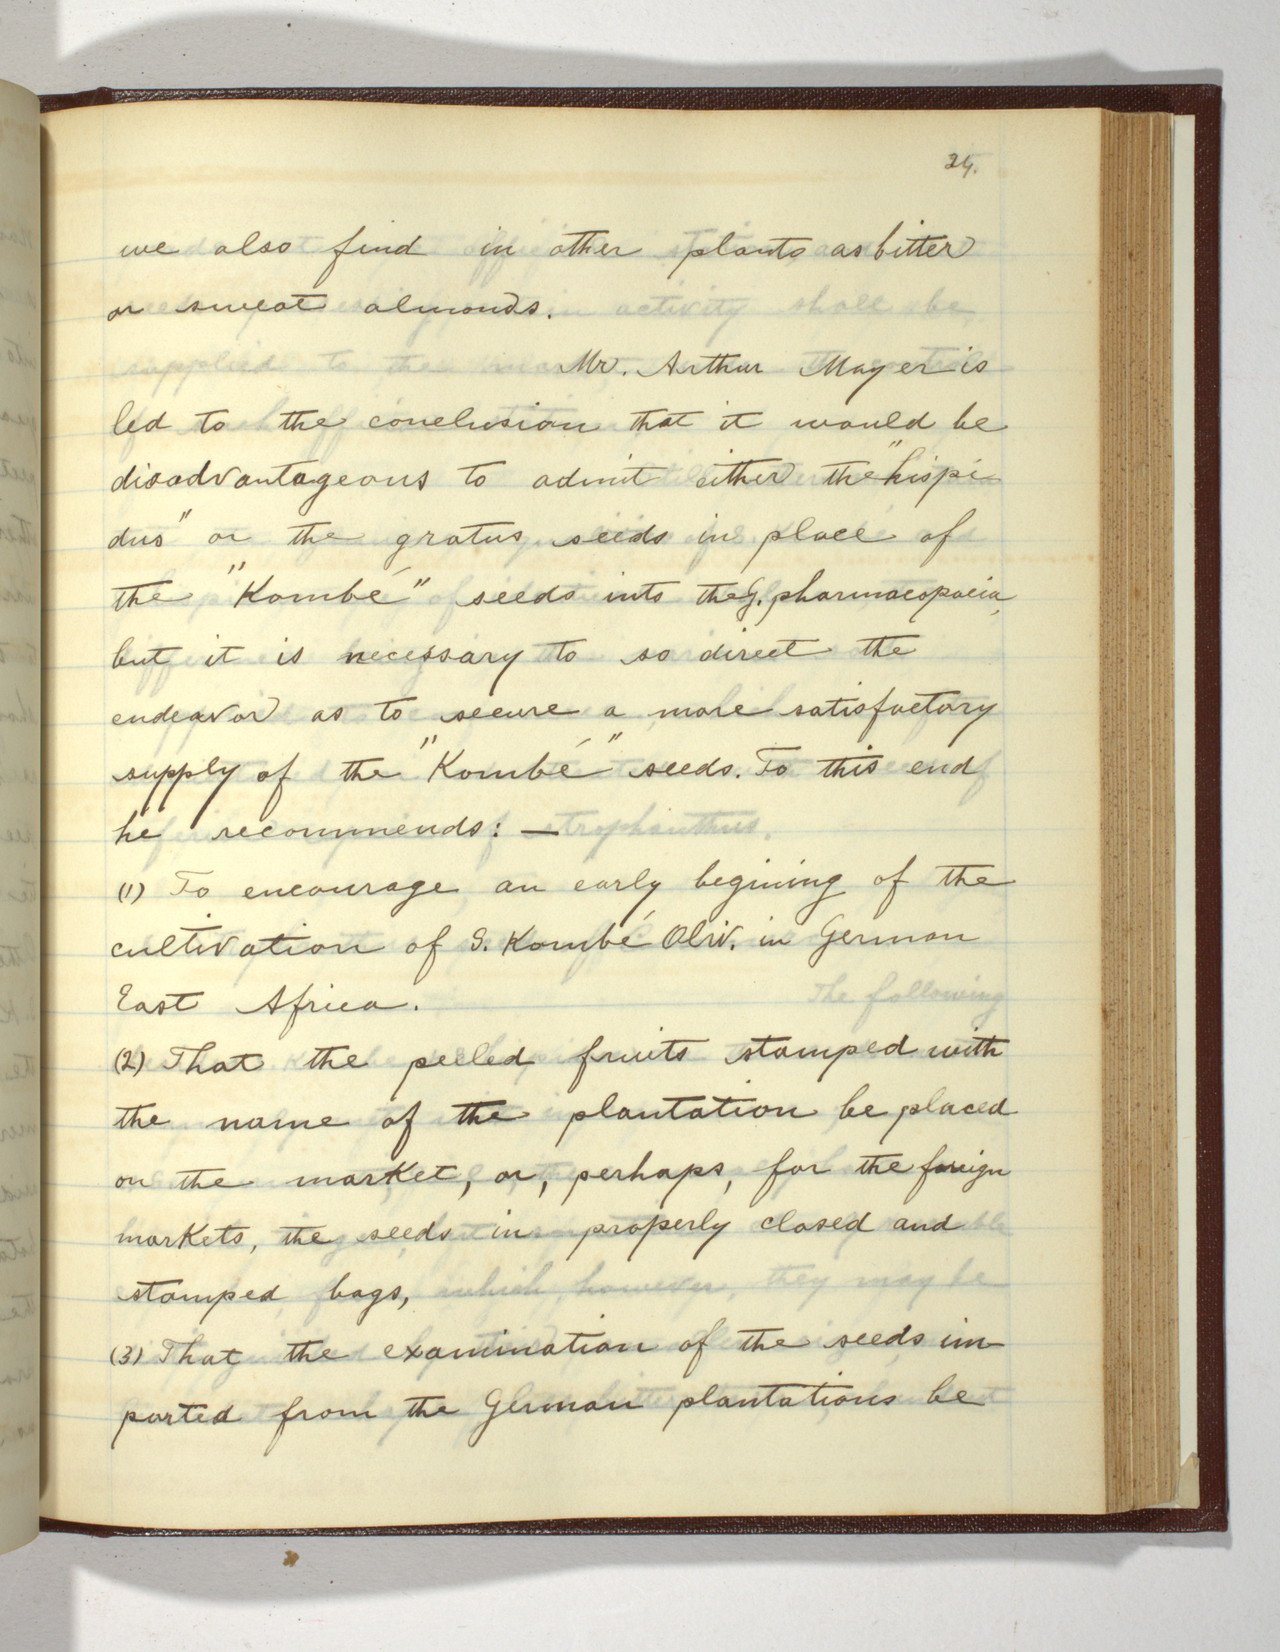 24.
we also find in other plants as bitter
or sweat almonds.
Mr. Arthur Mayer is
led to the conclusion that it would be
disadvantageous to admit either the "hispi-
dus" or the gratus seeds in place of
the "Kombé" seeds into the G. pharmacopoeia,
but it is necessary to so direct the
endeavor as to secure a more satisfactory
supply of the "Kombé" seeds. To this end
he recommends: —
(1) To encourage an early begining of the
cultivation of S. Kombé Oliv. in German
East Africa.
(2) That the peeled fruits stamped with
the name of the plantation be placed
on the market, or, perhaps, for the foreign
markets, the seeds in properly closed and
stamped bags,
(3) That the examination of the seeds im-
ported from the German plantations be